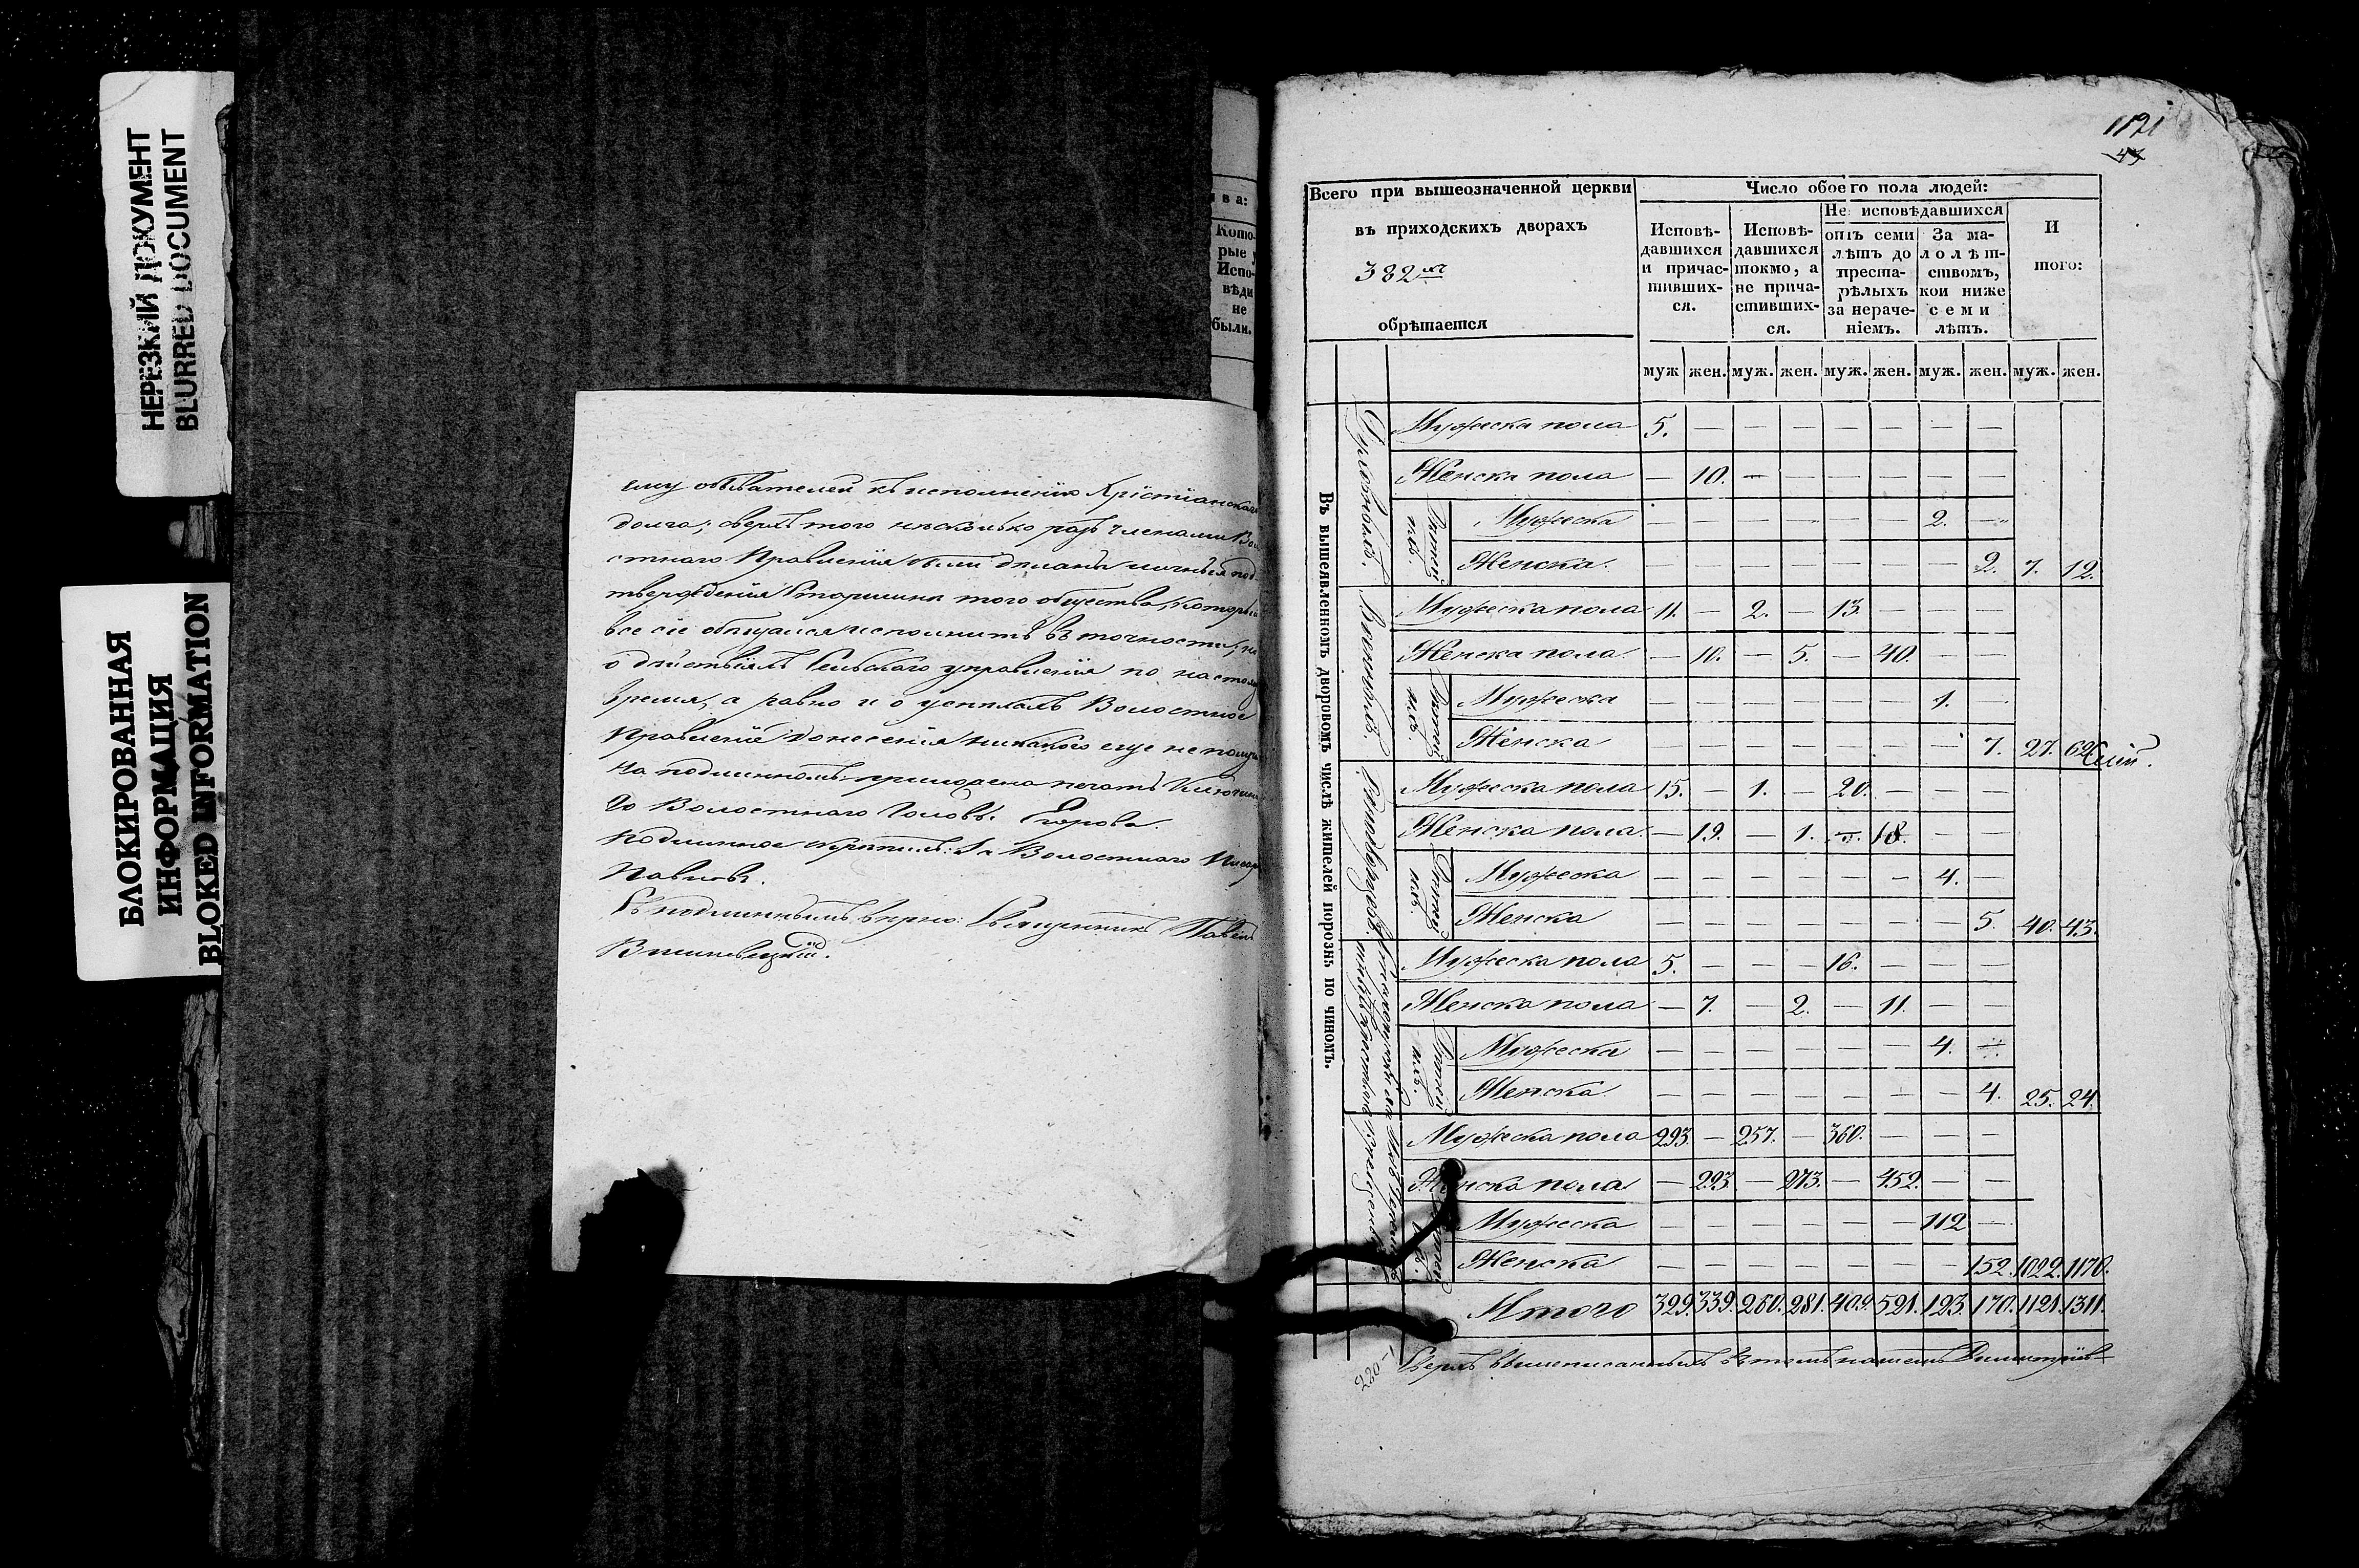 НЕРЕЗКИЙ ДОКУМЕНТ
BLURRED DOCUMENT
БЛОКИРОВАННАЯ
ИНФОРМАЦИЯ
BLOKED INFORMATION
ему обывателей къ исполненію Хрістіанскаго
долга; сверхъ того несколько разъ членами
стнаго Правленія были деланы личныя под
твержденія Старшинѣ того общества, которыя
все сіе обещался исполнить въ точности, но
о действіяхъ Сельскаго управленія по настоя
время, а равно и о успехахъ Волостное
Правленіе донесенія никакого еще не получ
На подлинномъ приложена печать
го Волостнаго Головы Егорова.
Подлинное скрепилъ: За Волостнаго Писаря
Павловъ.
Съ подлиннымъ верно: Священникъ Павелъ
Вишневецкій.
в а:
Кото-
рые у
Испо-
вѣди
не
были.
1121
43
Всего при вышеозначенной церкви
въ приходскихъ дворахъ
382
обрѣтается
Число обоего пола людей:
Исповѣ-
давшихся
и причас-
тивших-
ся.
Исповѣ-
давшихся
токмо, а
не прича-
стивших-
ся.
Не исповѣдавшихся
отъ семи
лѣтъ до
преста-
рѣлыхъ
за нераче-
ніемъ.
За ма-
лолѣт-
ствомъ,
кои ниже
семи
лѣтъ.
И
того:
муж жен. муж. жен. муж. жен. муж. жен. муж. жен.
Въ вышеявленномъ дворовомъ числѣ жителей порознь по чиномъ.
Духовныхъ.
Мужеска пола 5. — — — — — — —
Женска пола — 10. — — — — — —
Детей ихъ.
Мужеска — — — — — — 2. —
Женска. — — — — — — — 2. 7. 12.
Военныхъ.
Мужеска пола 11. — 2. — 13. — — —
Женска пола. — 10. — 5. — 40. — —
Детей ихъ.
Мужеска — — — — — — 1. —
Женска — — — — — — — 7. 27. 62.
Мужеска пола 15. — 1. — 20. — — —
Женска пола. — 19. — 1. — 18. — —
Детей ихъ.
Мужеска — — — — — — 4. —
Женска — — — — — — — 5. 40. 43.
Мужеска пола 5. — — — 16. — — —
Женска пола — 7. — 2. — 11. — —
Детей ихъ.
Мужеска — — — — — — 4. —
Женска. — — — — — — — 4. 25. 24.
Мужеска пола 293. — 257. — 360. — — —
Женска пола — 293. — 273. — 452. — —
Мужеска — — — — — — 112 —
Женска — — — — — — — 152. 1022. 1170.
Итого 329. 339. 260. 281. 409. 521. 123. 170. 1121. 1311.
220-1
Сверхъ вышеписанныхъ въ томъ нашемъ